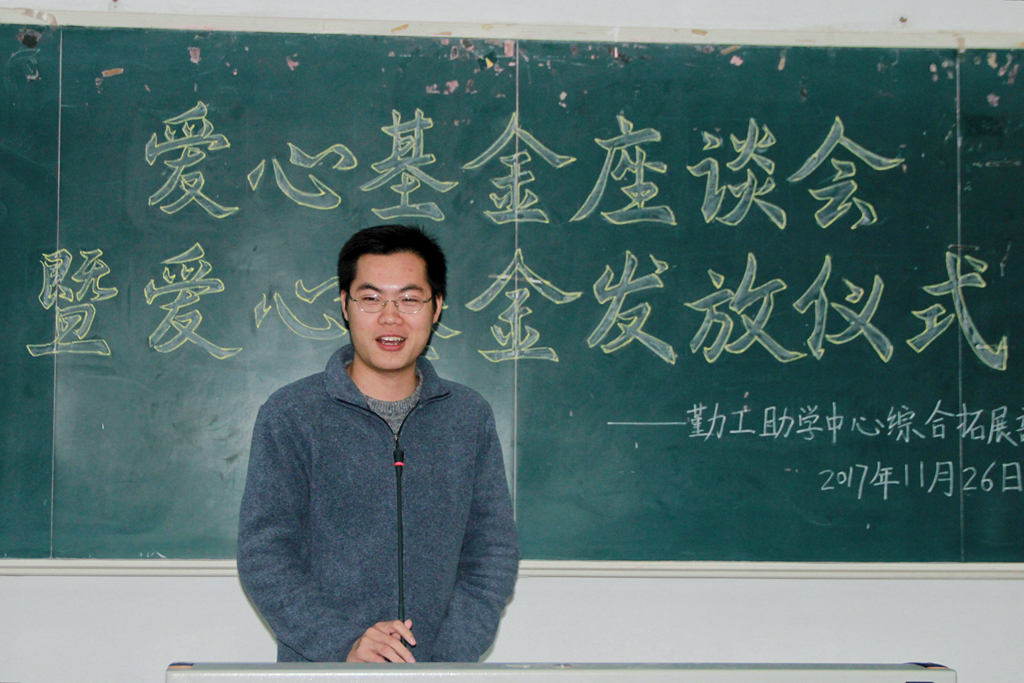 爱心基金座谈会
暨爱心 金发放仪式
——勤工助学中心综合拓展
2017年11月26日